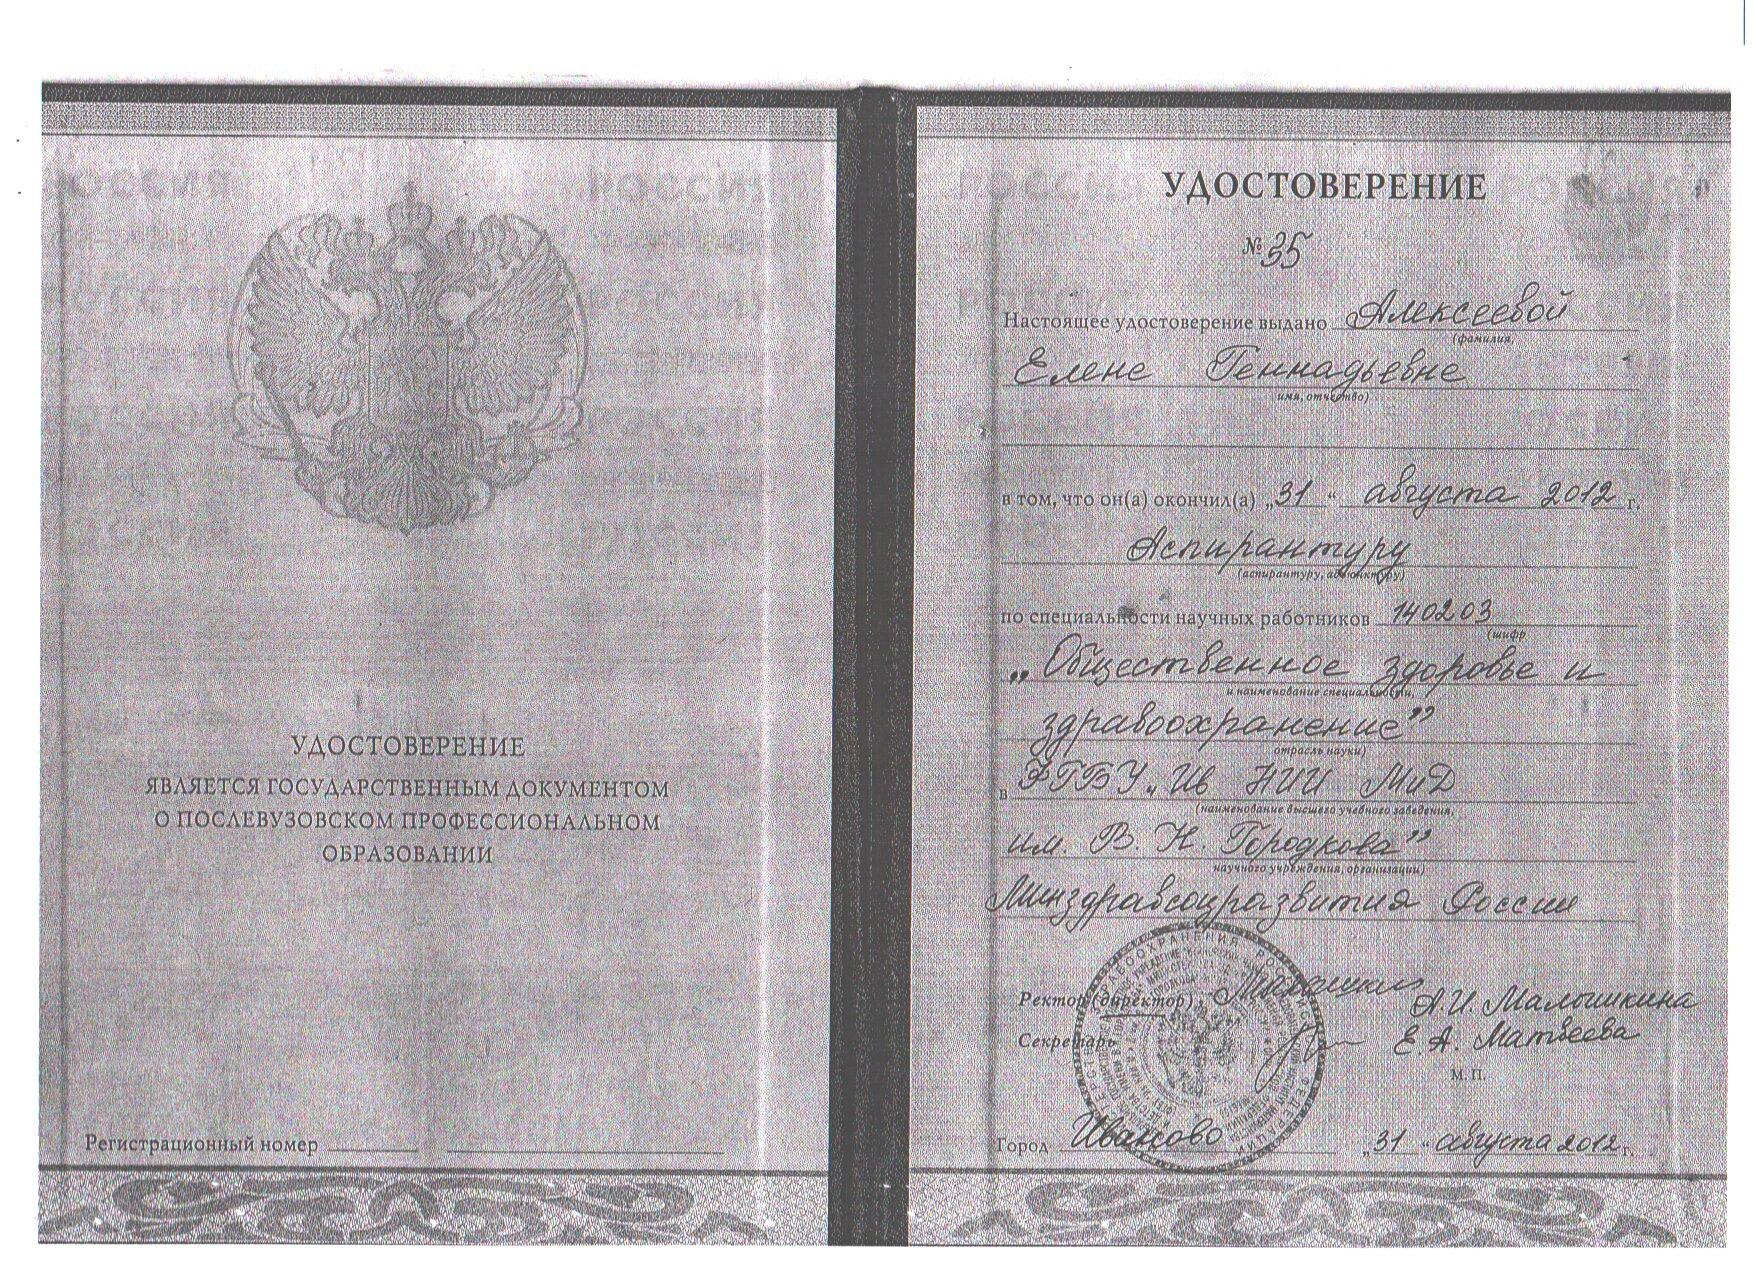 УДОСТОВЕРЕНИЕ
ЯВЛЯЕТСЯ ГОСУДАРСТВЕННЫМ ДОКУМЕНТОМ
О ПОСЛЕВУЗОВСКОМ ПРОФЕССИОНАЛЬНОМ
ОБРАЗОВАНИИ
Регистрационный номер
УДОСТОВЕРЕНИЕ
№ 35
Настоящее удостоверение выдано Алексеевой
(фамилия,
Елене Геннадьевне
имя, отчество)
в том, что он(а) окончил(а) „31“ августа 2012 г.
Аспирантуру
(аспирантуру, адъюнктуру)
по специальности научных работников 140203
(шифр
„Общественное здоровье и
и наименование специальности,
здравоохранение”
отрасль науки)
в ФГБУ „Ив НИИ МиД
(наименование высшего учебного заведения,
им. В. Н. Городкова”
научного учреждения, организации)
Минздравсоцразвития России
Ректор (директор) А.И. Малышкина
Секретарь Е.А. Матвеева
М. П.
Город Иваново „31“ августа 2012 г.